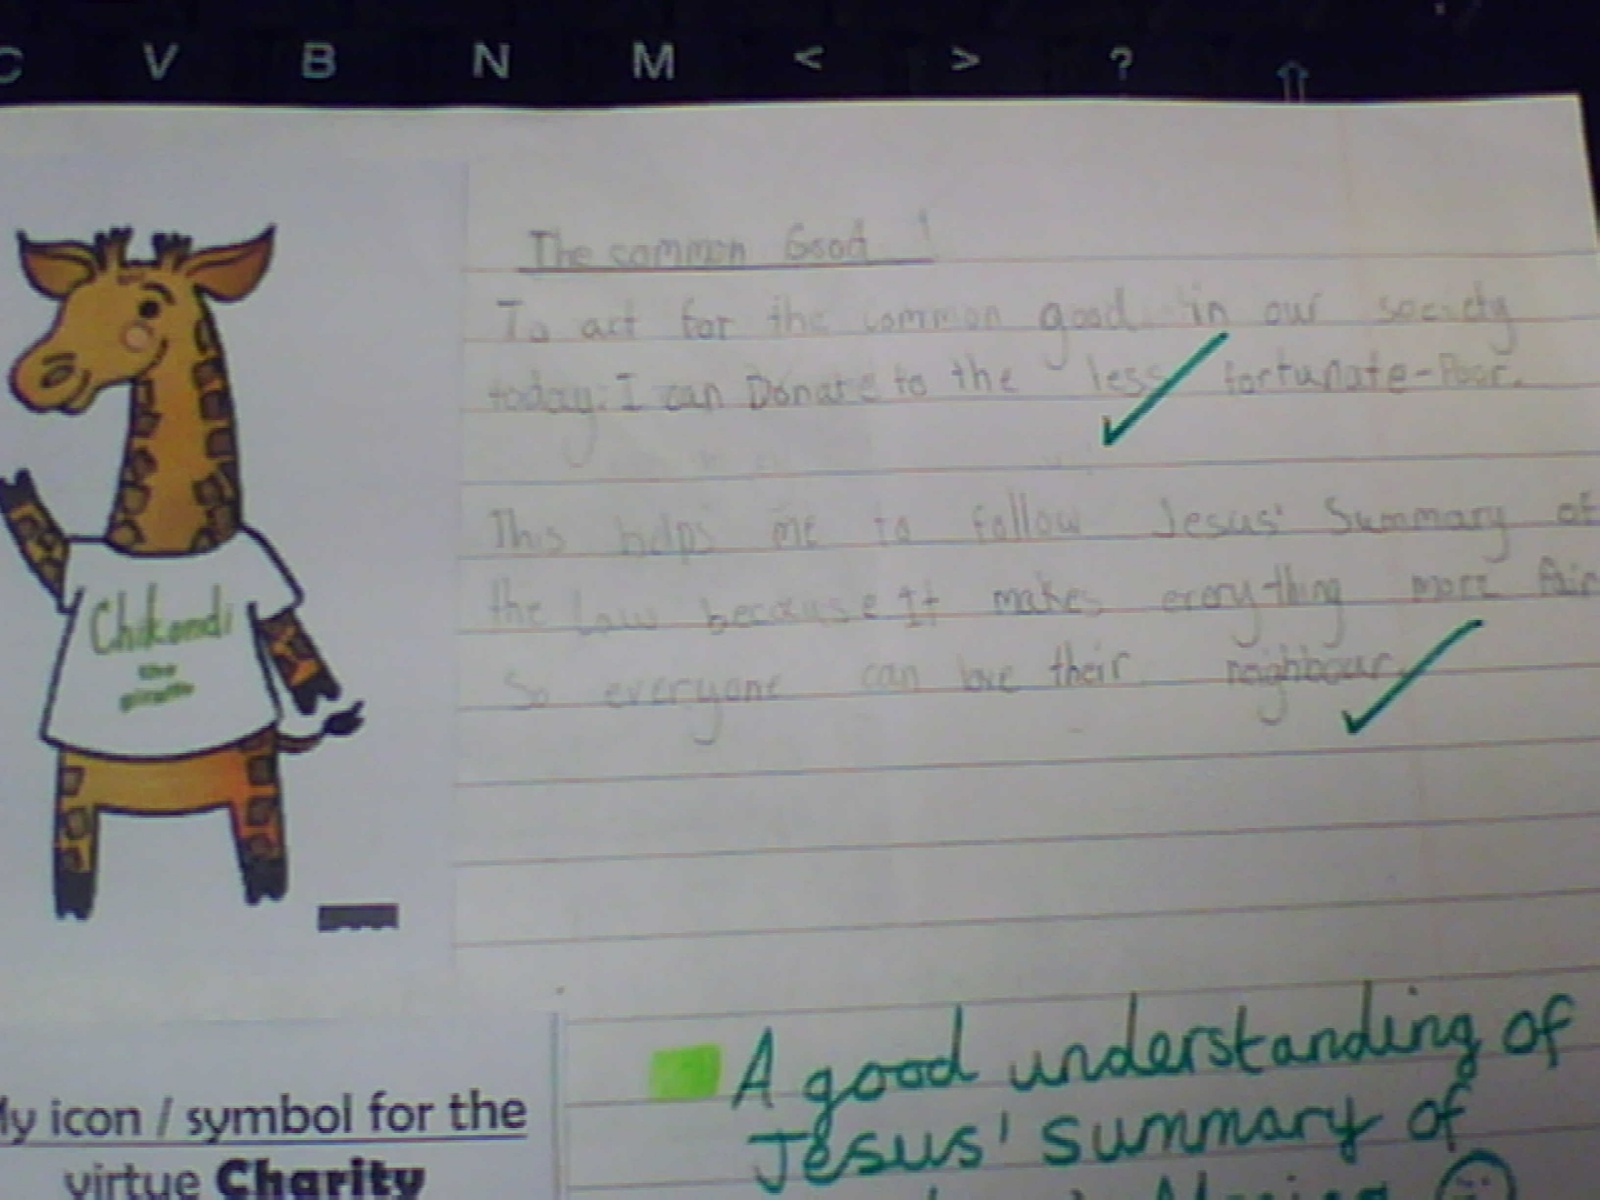 C V B N M < > ? ⇧
The common Good !
To act for the common good in our society
today: I can Donate to the less fortunate-Poor.
This helps me to follow Jesus' Summary of
the Law because It makes everything more fair
So everyone can love their neighbour.
Chikondi
the
giraffe
My icon / symbol for the
virtue Charity
A good understanding of
Jesus' summary of